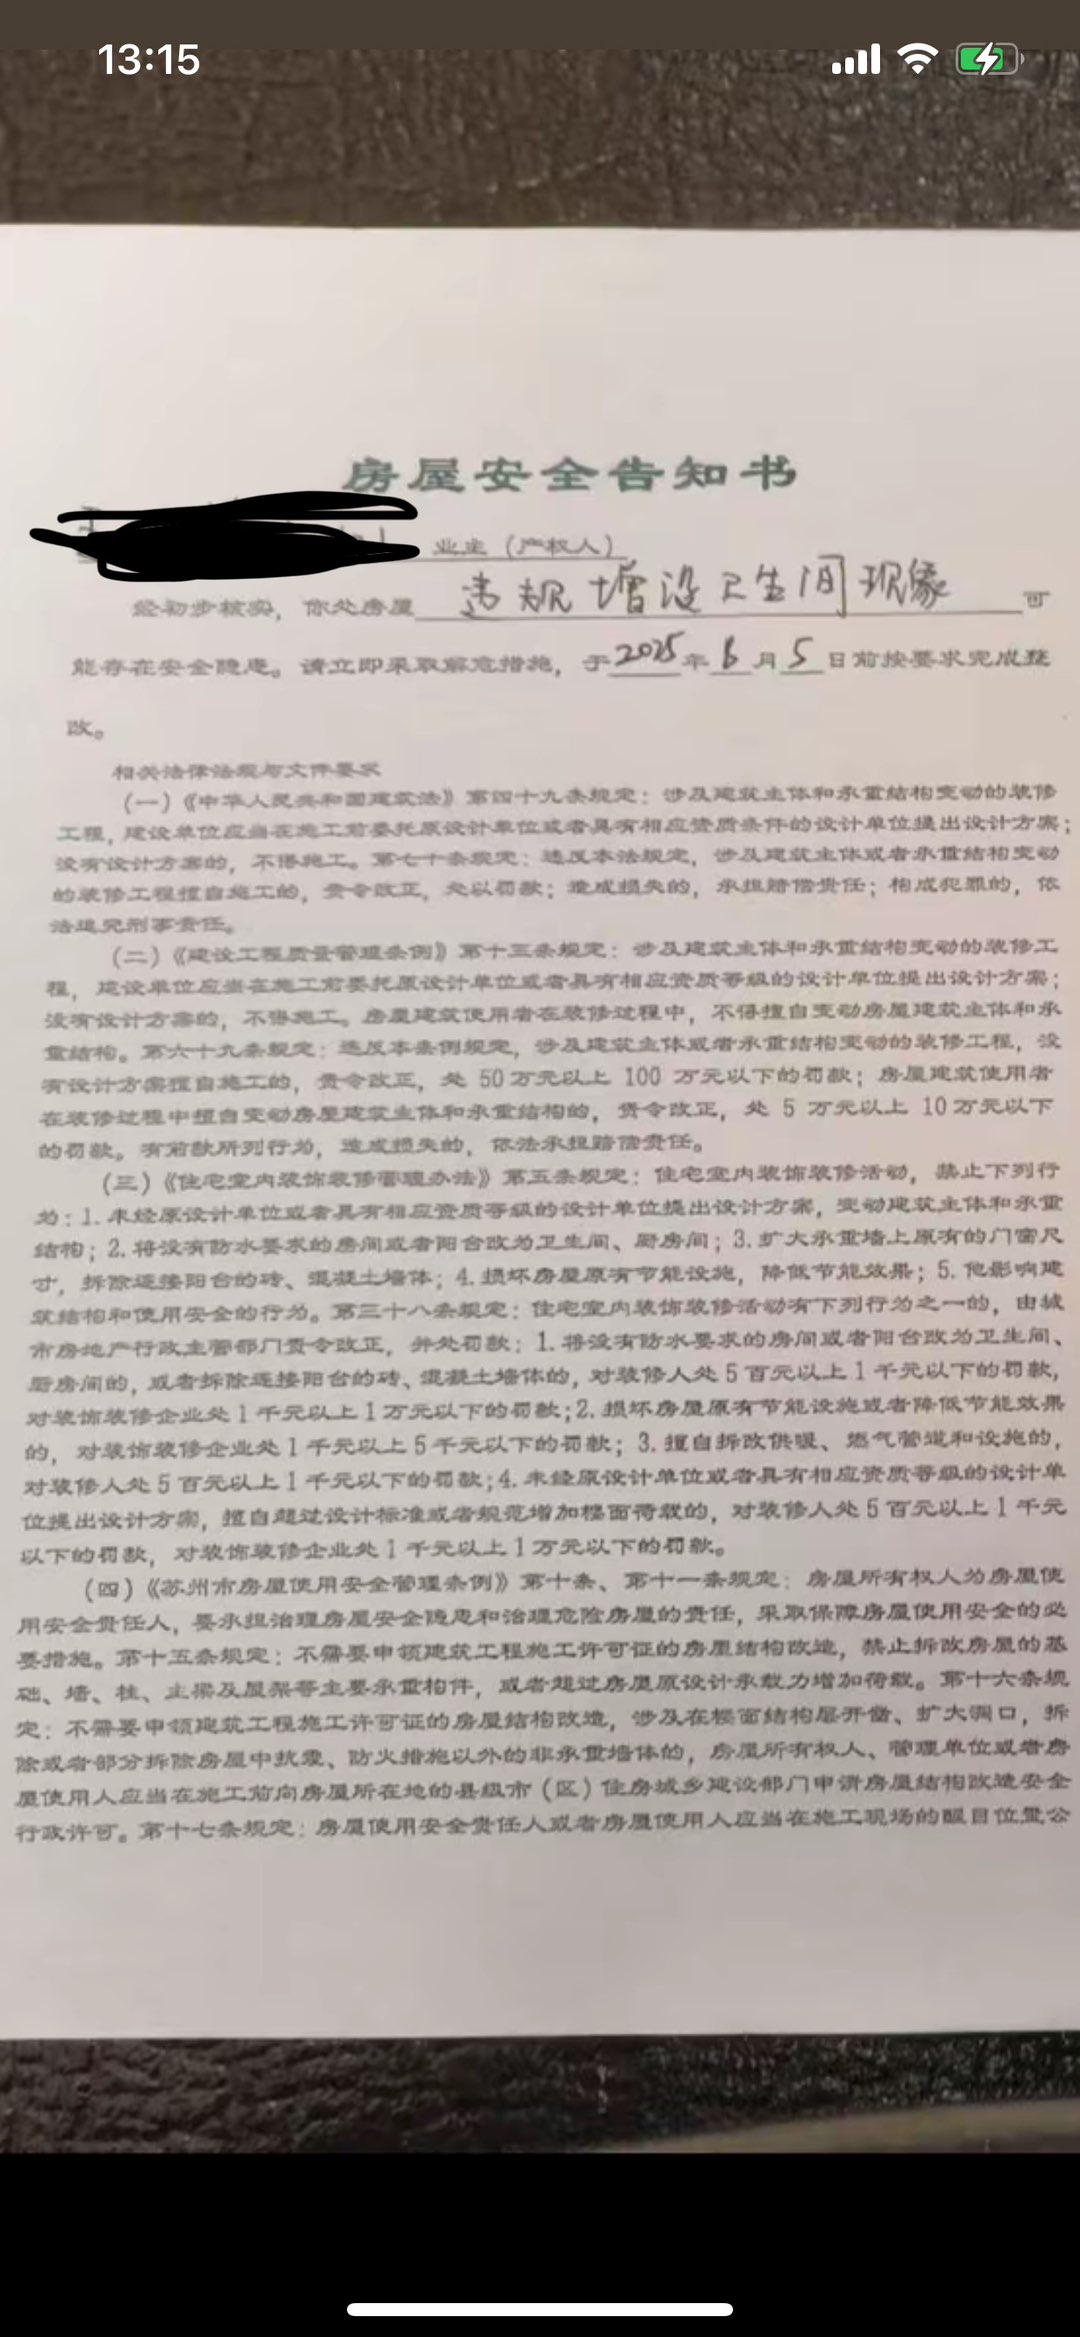 13:15
房屋安全告知书
业主（产权人）
经初步核实，你处房屋 违规增设卫生间现象 可
能存在安全隐患。请立即采取解危措施，于2025年6月5日前按要求完成整
改。
相关法律法规与文件要求
（一）《中华人民共和国建筑法》第四十九条规定：涉及建筑主体和承重结构变动的装修
工程，建设单位应当在施工前委托原设计单位或者具有相应资质条件的设计单位提出设计方案；
没有设计方案的，不得施工。第七十条规定：违反本法规定，涉及建筑主体或者承重结构变动
的装修工程擅自施工的，责令改正，处以罚款；造成损失的，承担赔偿责任；构成犯罪的，依
法追究刑事责任。
（二）《建设工程质量管理条例》第十五条规定：涉及建筑主体和承重结构变动的装修工
程，建设单位应当在施工前委托原设计单位或者具有相应资质等级的设计单位提出设计方案；
没有设计方案的，不得施工。房屋建筑使用者在装修过程中，不得擅自变动房屋建筑主体和承
重结构。第六十九条规定：违反本条例规定，涉及建筑主体或者承重结构变动的装修工程，没
有设计方案擅自施工的，责令改正，处 50 万元以上 100 万元以下的罚款；房屋建筑使用者
在装修过程中擅自变动房屋建筑主体和承重结构的，责令改正，处 5 万元以上 10 万元以下
的罚款。有前款所列行为，造成损失的，依法承担赔偿责任。
（三）《住宅室内装饰装修管理办法》第五条规定：住宅室内装饰装修活动，禁止下列行
为：1. 未经原设计单位或者具有相应资质等级的设计单位提出设计方案，变动建筑主体和承重
结构；2. 将没有防水要求的房间或者阳台改为卫生间、厨房间；3. 扩大承重墙上原有的门窗尺
寸，拆除连接阳台的砖、混凝土墙体；4. 损坏房屋原有节能设施，降低节能效果；5. 他影响建
筑结构和使用安全的行为。第三十八条规定：住宅室内装饰装修活动有下列行为之一的，由城
市房地产行政主管部门责令改正，并处罚款：1. 将没有防水要求的房间或者阳台改为卫生间、
厨房间的，或者拆除连接阳台的砖、混凝土墙体的，对装修人处 5 百元以上 1 千元以下的罚款，
对装饰装修企业处 1 千元以上 1 万元以下的罚款；2. 损坏房屋原有节能设施或者降低节能效果
的，对装饰装修企业处 1 千元以上 5 千元以下的罚款；3. 擅自拆改供暖、燃气管道和设施的，
对装修人处 5 百元以上 1 千元以下的罚款；4. 未经原设计单位或者具有相应资质等级的设计单
位提出设计方案，擅自超过设计标准或者规范增加楼面荷载的，对装修人处 5 百元以上 1 千元
以下的罚款，对装饰装修企业处 1 千元以上 1 万元以下的罚款。
（四）《苏州市房屋使用安全管理条例》第十条、第十一条规定：房屋所有权人为房屋使
用安全责任人，要承担治理房屋安全隐患和治理危险房屋的责任，采取保障房屋使用安全的必
要措施。第十五条规定：不需要申领建筑工程施工许可证的房屋结构改造，禁止拆改房屋的基
础、墙、柱、主梁及屋架等主要承重构件，或者超过房屋原设计承载力增加荷载。第十六条规
定：不需要申领建筑工程施工许可证的房屋结构改造，涉及在楼面结构层开凿、扩大洞口，拆
除或者部分拆除房屋中抗震、防火措施以外的非承重墙体的，房屋所有权人、管理单位或者房
屋使用人应当在施工前向房屋所在地的县级市（区）住房城乡建设部门申请房屋结构改造安全
行政许可。第十七条规定：房屋使用安全责任人或者房屋使用人应当在施工现场的醒目位置公